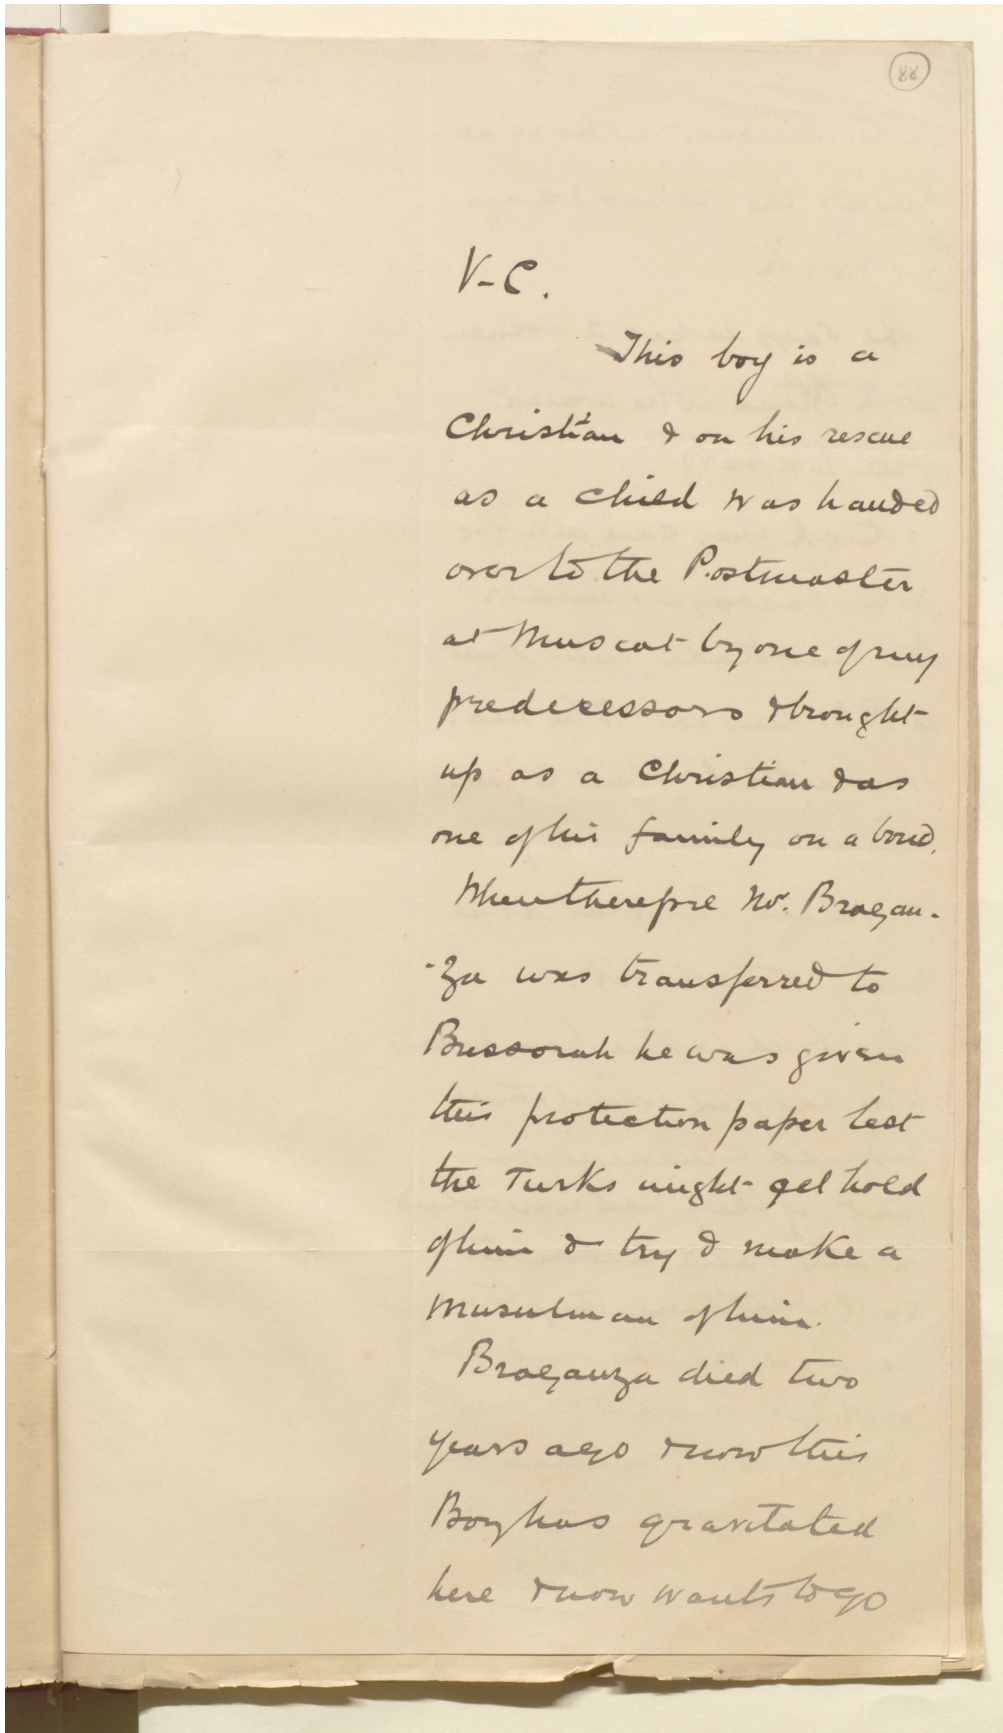 88
V-C.
This boy is a
Christian & on his rescue
as a child was handed
over to the Postmaster
at Muscat by one of my
predecessors & brought
up as a Christian & as
one of his family on a bond.
When therefore Mr. Bragan-
-za was transferred to
Bussorah he was given
this protection paper lest
the Turks might get hold
of him & try & make a
Musulman of him.
Braganza died two
years ago & now this
Boy has gravitated
here & now wants to go